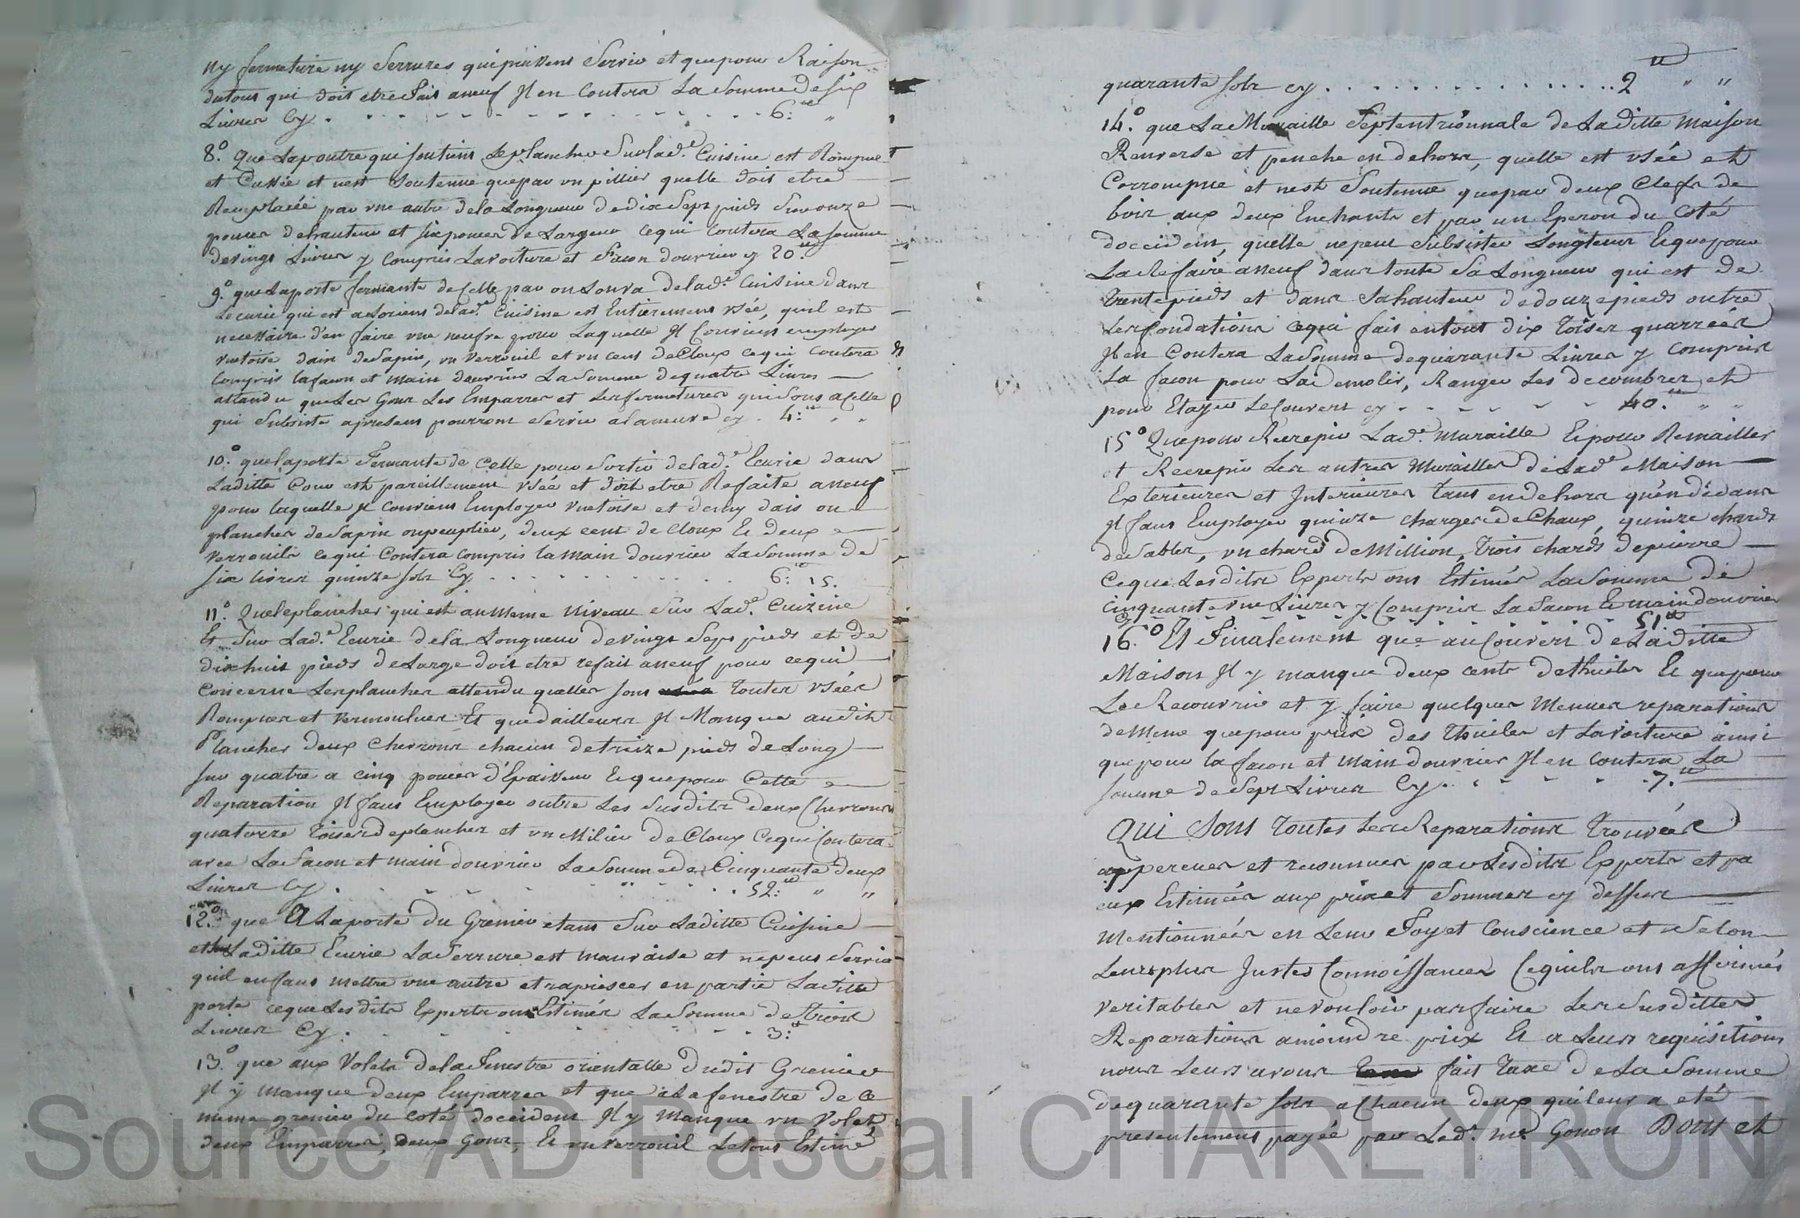 ny fermeture ny Serrures qui puissent Servir et que pour Raison
du tout qui doit etre fait aneuf Jl en Coutera La Somme de Six
Livres Cy . . . . . . . . . . . . . . 6:ᵗᵗ "
8.° Que La poutre qui Soutient Le plancher Sur lad.ᵉ Cuisine est Rompue
et Cassée et nest Soutenue que par un pillier quelle doit etre
Remplacée par une autre de la Longueur de dix Sept pieds Sur onze
pouces de hauteur et six pouces de Largeur ce qui Coutera La Somme
de vingt Livres y Compris La voiture et Facon douvrier cy 20.ᵗᵗ
9.° que La porte fermante de Celle par ou Lon va de lad.ᵉ Cuisine dans
Lecurie qui est a Lorient de lad.ᵉ Cuisine est Entierement usée, quil est
necessaire d'en faire une neufve pour Laquelle Jl Convient employer
une toise dais de Sapin, un Verrouil et un Cent de Cloux ce qui Coutera
Compris la facon et main douvrier La Somme de quatre Livres
attendu que Les Gonds Les Emparres et Les fermetures qui Sont a Celle
qui Subsiste apresent pourront Servir a la neuve cy . 4:ᵗᵗ " "
10.° que la porte Fermante de Celle pour Sortir de lad.ᵉ Ecurie dans
Laditte Cour est pareillement usée et doit etre Refaite aneuf
pour laquelle Jl Convient Employer une toise et demy dais ou
plancher de Sapin ou peuplier, deux cent de Cloux Et deux
Verrouils ce qui Coutera compris la main douvrier La Somme de
six livres quinze sols Cy . . . . . . . . . . 6:ᵗᵗ 15.
11.° Que le plancher qui est au meme niveau Sur Lad.ᵉ Cuizine
Et Sur Lad.ᵉ Ecurie de la Longueur de vingt Sept pieds et de
dix huit pieds de Large doit etre refait aneuf pour ce qui
Concerne Les plancher attendu quelles sont toutes usées
Rompues et vermoulues Et que dailleurs Jl Manque audit
Plancher deux Chevrons chacun de treize pieds de Long
sur quatre a cinq pouces d'Epaisseur Et que pour Cette
Reparation Jl faut Employer outre Les Susdits deux Chevrons
quatorze Toises de plancher et un Milier de Cloux Ce qui Coutera
avec La facon et main douvrier La Somme de Cinquante deux
Livres Cy . . . . . . . . . . 52:ᵗᵗ " "
12.° que A La porte du Grenier etant Sur Laditte Cuisine
et Laditte Ecurie La Serrure est mauvaise et ne peut Servir
quil en faut mettre une autre et rapiesser en partie Laditte
porte ce que Lesdits Experts ont Estimés La Somme de trois
Livres Cy . . . . . . . . 3:ᵗᵗ
13.° que aux Volets de la Fenestre orientalle Dudit Grenier
Jl y manque deux Emparres et que a La fenestre de Ce
meme grenier du Coté doccident Jl y Manque un Volet
deux Emparres, deux Gonds, Et un Verrouil Le tout Estimé
quarante sols cy . . . . . . . . . . . . . . 2ᵗᵗ " "
14.° que La Muraille Septentrionnale de Laditte Maison
Renverse et penche en dehors, quelle est usée et
Corrompue et nest Soutenue que par deux Clefs de
bois aux deux Enchants et par un Eperon du Coté
doccident, quelle ne peut Subsister Longtems Et que pour
La Refaire aneuf dans toute Sa Longueur qui est de
trente pieds et dans Sa hauteur de douze pieds outre
Les fondations ce qui fait en tout dix toises quarrées
Jl en Coutera La Somme de quarante Livres y Compris
La facon pour La demolir, Ranger Les decombres et
pour Etayer Le Couvert cy . . . . . . 40.ᵗᵗ " "
15.° Que pour Recrepir Lad.ᵉ muraille Et pour Remailler
et Recrepir Les autres Murailles de Lad.ᵉ Maison
Exterieures et Interieures tant en dehors qu'en dedans
Jl faut Employer quinze charges de Chaux, quinze chards
de Sables, un chard de Million, trois chards de pierre
Ce que Lesdits Experts ont Estimés La Somme de
Cinquante une Livres y Compris La facon Et main douvrier
Cy . . . . . . . . . . . . 51ᵗᵗ
16.° Et Finalement que au Couvert de Laditte
Maison Jl y manque deux cents de thuiles Et que pour
Le Recouvrir et y faire quelques Menues reparations
de Meme que pour prix des Thuiles et La voiture ainsi
que pour la facon et main douvrier Jl en Coutera La
somme de Sept Livres Cy . . . . . 7.ᵗᵗ
Qui Sont toutes Les Reparations trouvées
appercues et reconnues par Lesdits Experts et pa
eux Estimés aux prix et Sommes cy dessus
Mentionnées en Leur Foy et Conscience et Selon
Leurs plus Justes Connoissances Ce quils ont affirmés
veritables et ne vouloir pas faire Les Susdittes
Reparations amoindre prix Et a Leurs requisition
nous Leurs avons fait Taxe de La Somme
de quarante sols a Chacun deux qui leur a eté
presentement payée par Led.ᵗ mᵉ Gonon Dont et
Source AD Pascal CHAREYRON